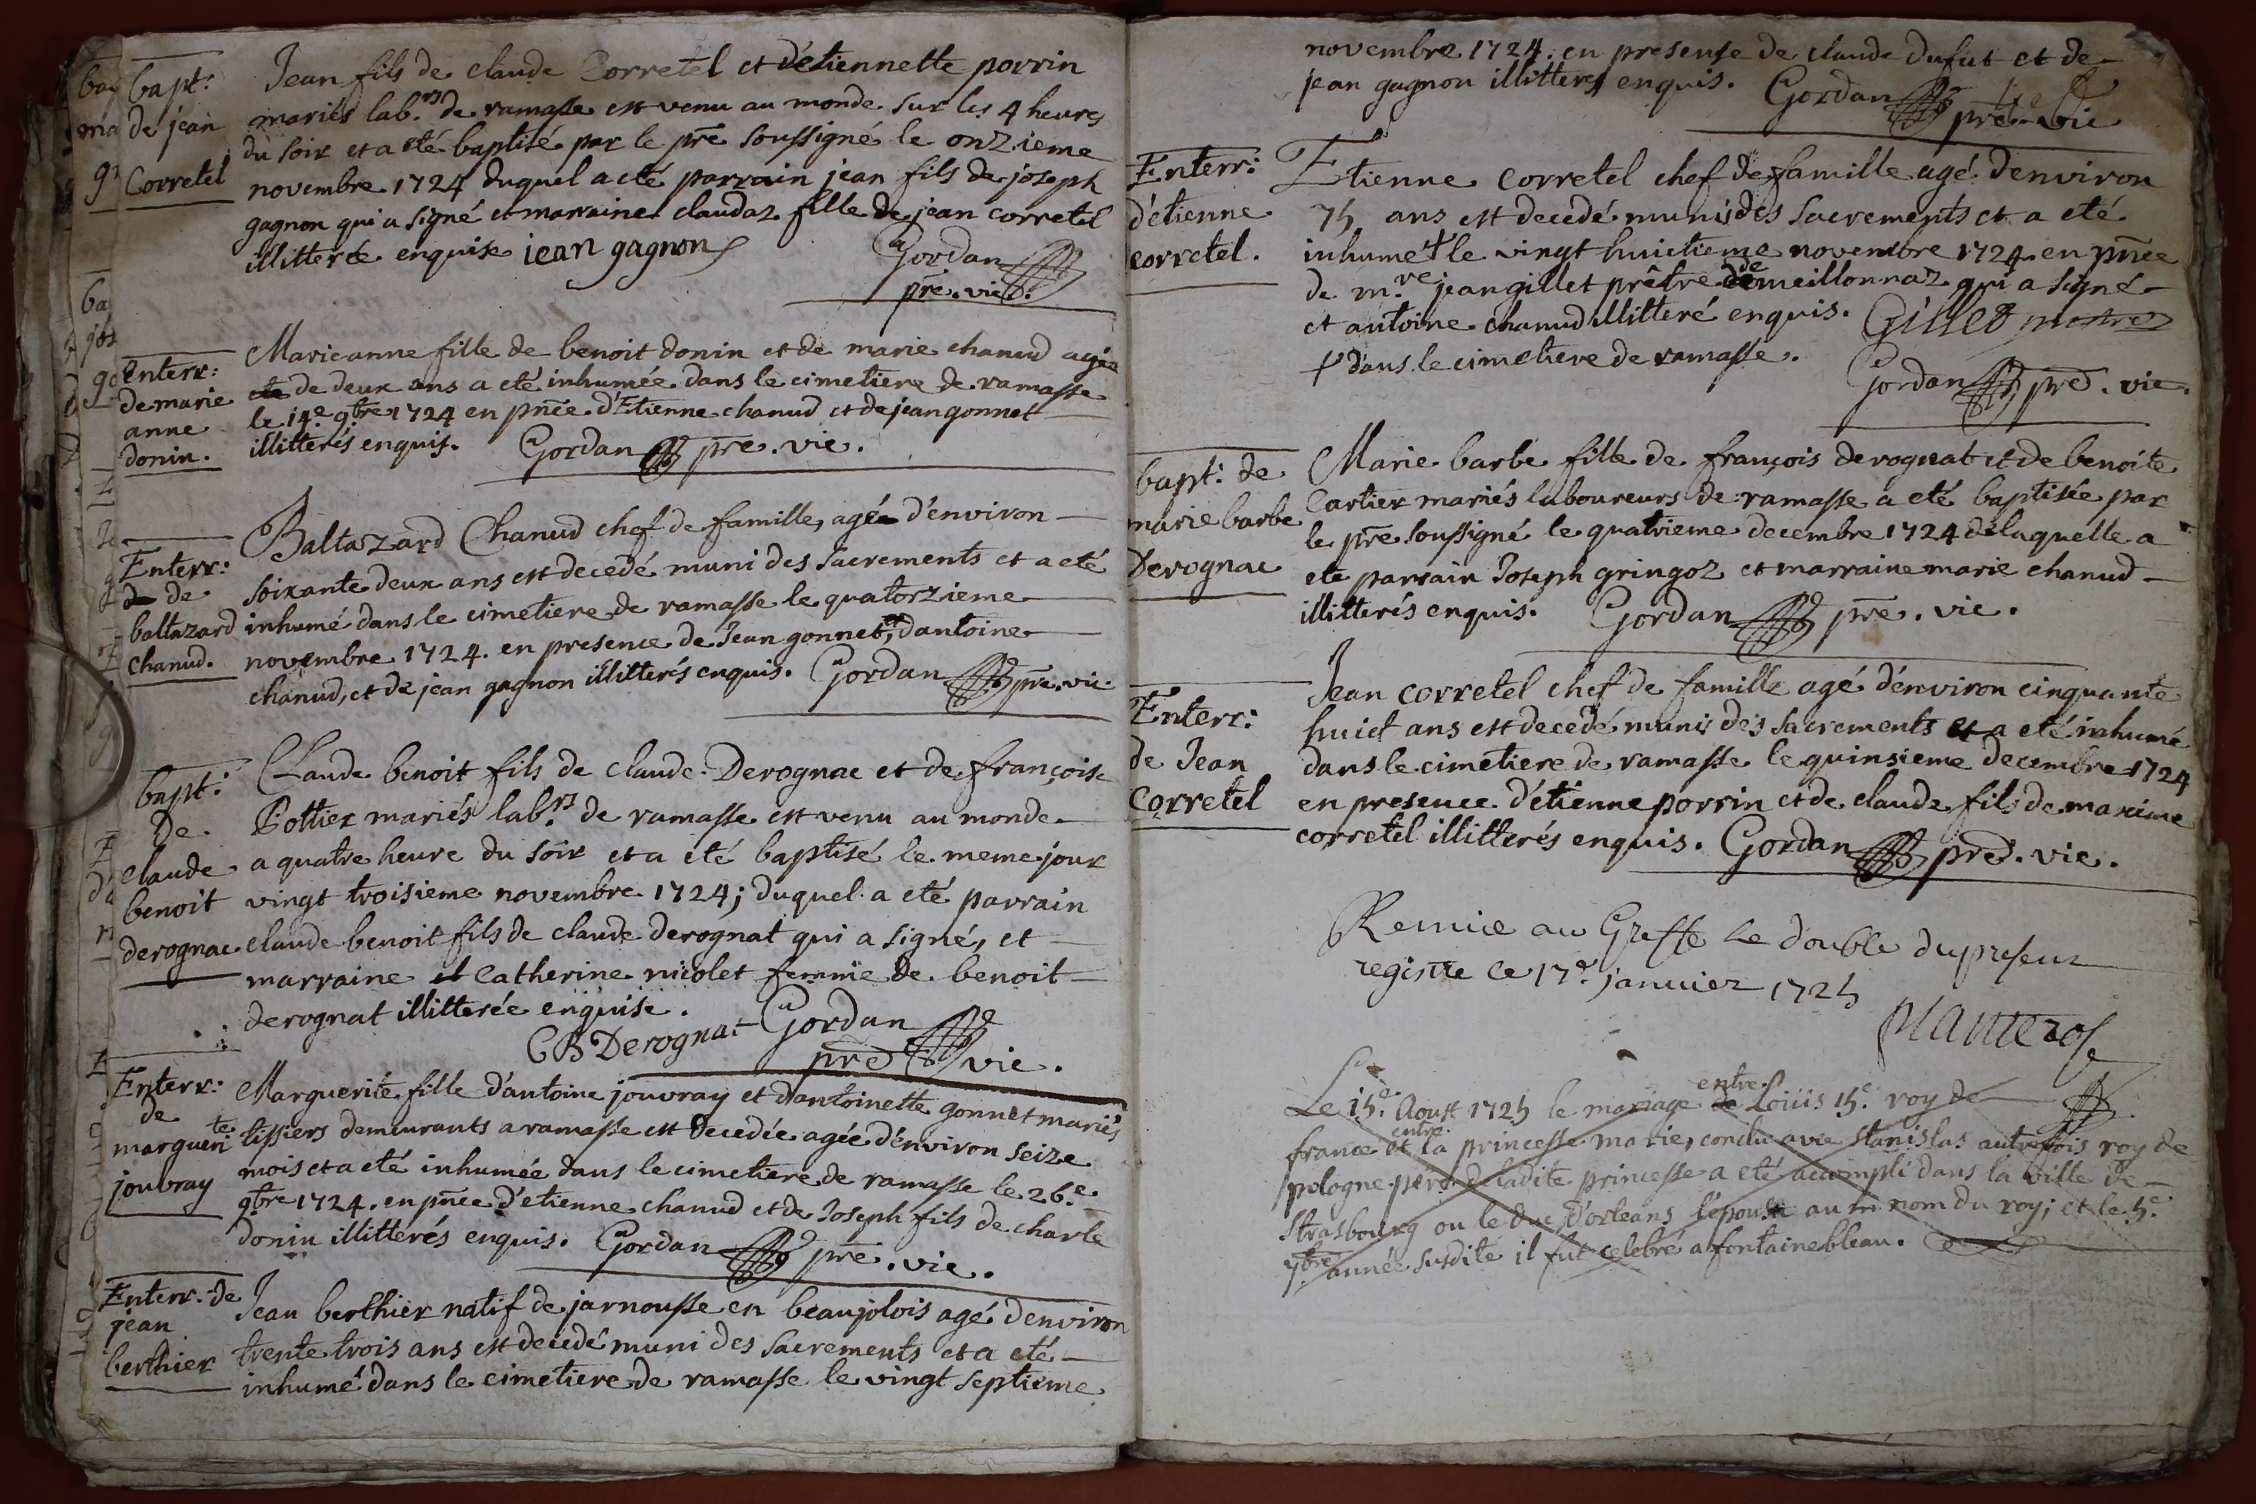 bapt:
de jean
Corretel
Jean fils de claude Corretel et d'étiennette porrin
mariés lab.rs de ramasse est venu au monde sur les 4 heures
du soir et a eté baptisé par le pre soussigné le onzieme
novembre 1724 duquel a eté parrain jean fils de joseph
gagnon qui a signé et marraine claudaz fille de jean corretel
illitterée enquise jean gagnon
Gordan
pre. vic.
Enterr:
de marie
anne
donin.
Marieanne fille de benoit donin et de marie chanud agée
de deux ans a eté inhumée dans le cimetiere de ramasse
le 14.e 9.bre 1724 en pnce d'Etienne chanud et de jean gonnet
illitterés enquis. Gordan pre. vic.
Enterr:
de
baltazard
chanud.
Baltazard Chanud chef de famille, agé d'environ
soixante deux ans est decedé muni des sacrements et a eté
inhumé dans le cimetiere de ramasse le quatorzieme
novembre 1724. en presence de Jean gonnet, et d'antoine
chanud, et de jean gagnon illitterés enquis. Gordan pre. vic.
bapt:
De
claude
benoit
derognac
Claude benoit fils de claude Derognac et de françoise
Pottier mariés lab.rs de ramasse est venu au monde
a quatre heure du soir et a eté baptisé le meme jour
vingt troisieme novembre 1724; duquel a eté parrain
claude benoit fils de claude derognat qui a signé, et
marraine et Catherine nicolet femme de benoit
derognat illitterée enquise.
CB Derognat Gordan
pre vic.
Enterr:
de
marguerite
jouvray
Marguerite fille d'antoine jouvray et d'antoinette gonnet mariés
tissiers demeurants a ramasse est decedée agée d'environ seize
mois et a eté inhumée dans le cimetiere de ramasse le 26.e
9bre 1724. en pnce d'etienne chanud et de Joseph fils de charle
donin illitterés enquis. Gordan pre. vic.
Enterr. de
jean
berthier
Jean berthier natif de jarnousse en beaujolois agé d'environ
trente trois ans est decedé muni des sacrements et a eté
inhumé dans le cimetiere de ramasse le vingt septieme
novembre 1724. en presense de claude dufut et de
jean gagnon illitterés enquis. Gordan
pre. vic
Enterr:
d'etienne
corretel.
Etienne corretel chef de famille agé d'environ
75 ans est decedé munis des sacrements et a eté
inhumé + le vingt huictieme novembre 1724. en pnce
de m.re jean gillet prêtre de meillonnaz qui a signé
et antoine chanud illitteré enquis. Gillet
+ dans le cimetiere de ramasse.
Gordan pre. vic.
bapt: de
marie barbe
Derognac
Marie barbe fille de françois derognat et de benoite
Cartier mariés laboureurs de ramasse a eté baptisée par
le pre soussigné le quatrieme decembre 1724 de laquelle a
eté parrain Joseph gringoz et marraine marie chanud
illitterés enquis. Gordan pre. vic.
Enterr:
de Jean
Corretel
Jean corretel chef de famille agé d'environ cinquante
huict ans est decedé munis des sacrements et a eté inhumé
dans le cimetiere de ramasse le quinsieme decembre 1724
en presence d'étienne porrin et de claude fils de maxime
corretel illitterés enquis. Gordan pre. vic.
Remice au Greffe le double du present
registre ce 17.e janvier 1725
Le 15.e Aoust 1725 le mariage entre Loüis 15.e roy de
france et entre la princesse marie, conclu avec stanislas autrefois roy de
pologne pere de ladite princesse a eté accompli dans la ville de
strasbourg ou le duc d'orleans l'épousa au nom du roy; et le 5.e
7bre année susdite il fut celebré a fontainebleau.